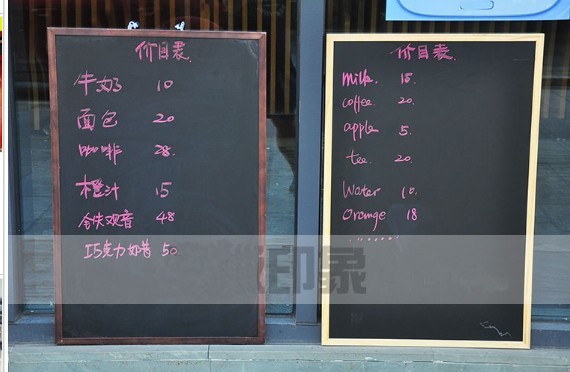 价目表
牛奶 10
面包 20
咖啡 28.
橙汁 15
铁观音 48
巧克力奶昔 50
价目表
Milk. 15.
coffee. 20.
apple 5.
tee. 20.
Water 10.
Orange 18
.......
印象